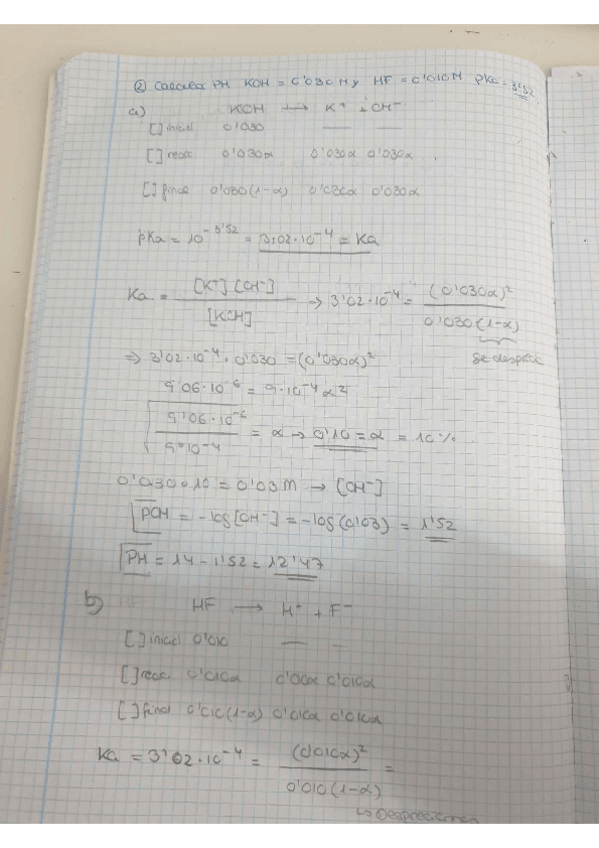 ② Calcula PH KOH = 0'030 M y HF = 0'010 M pKa = 3'52
a) KOH → K⁺ + OH⁻
[ ] inicial 0'030 — —
[ ] reacc 0'030α 0'030α 0'030α
[ ] final 0'030(1-α) 0'030α 0'030α
pKa = 10^-3'52 = 3'02·10⁻⁴ = Ka
Ka = [K⁺][OH⁻] / [KOH] ⇒ 3'02·10⁻⁴ = (0'030α)² / 0'030(1-α)
⇒ 3'02·10⁻⁴ · 0'030 = (0'030α)² Se desprec
9'06·10⁻⁶ = 9·10⁻⁴ α²
√(9'06·10⁻⁶ / 9·10⁻⁴) = α → 0'10 = α = 10%
0'030·10 = 0'03 M → [OH⁻]
POH = -log[OH⁻] = -log(0'03) = 1'52
PH = 14 - 1'52 = 12'47
b) HF → H⁺ + F⁻
[ ] inicial 0'010 — —
[ ] reac 0'010α 0'010α 0'010α
[ ] final 0'010(1-α) 0'010α 0'010α
Ka = 3'02·10⁻⁴ = (0'010α)² / 0'010(1-α) =
↳ Despreciamos